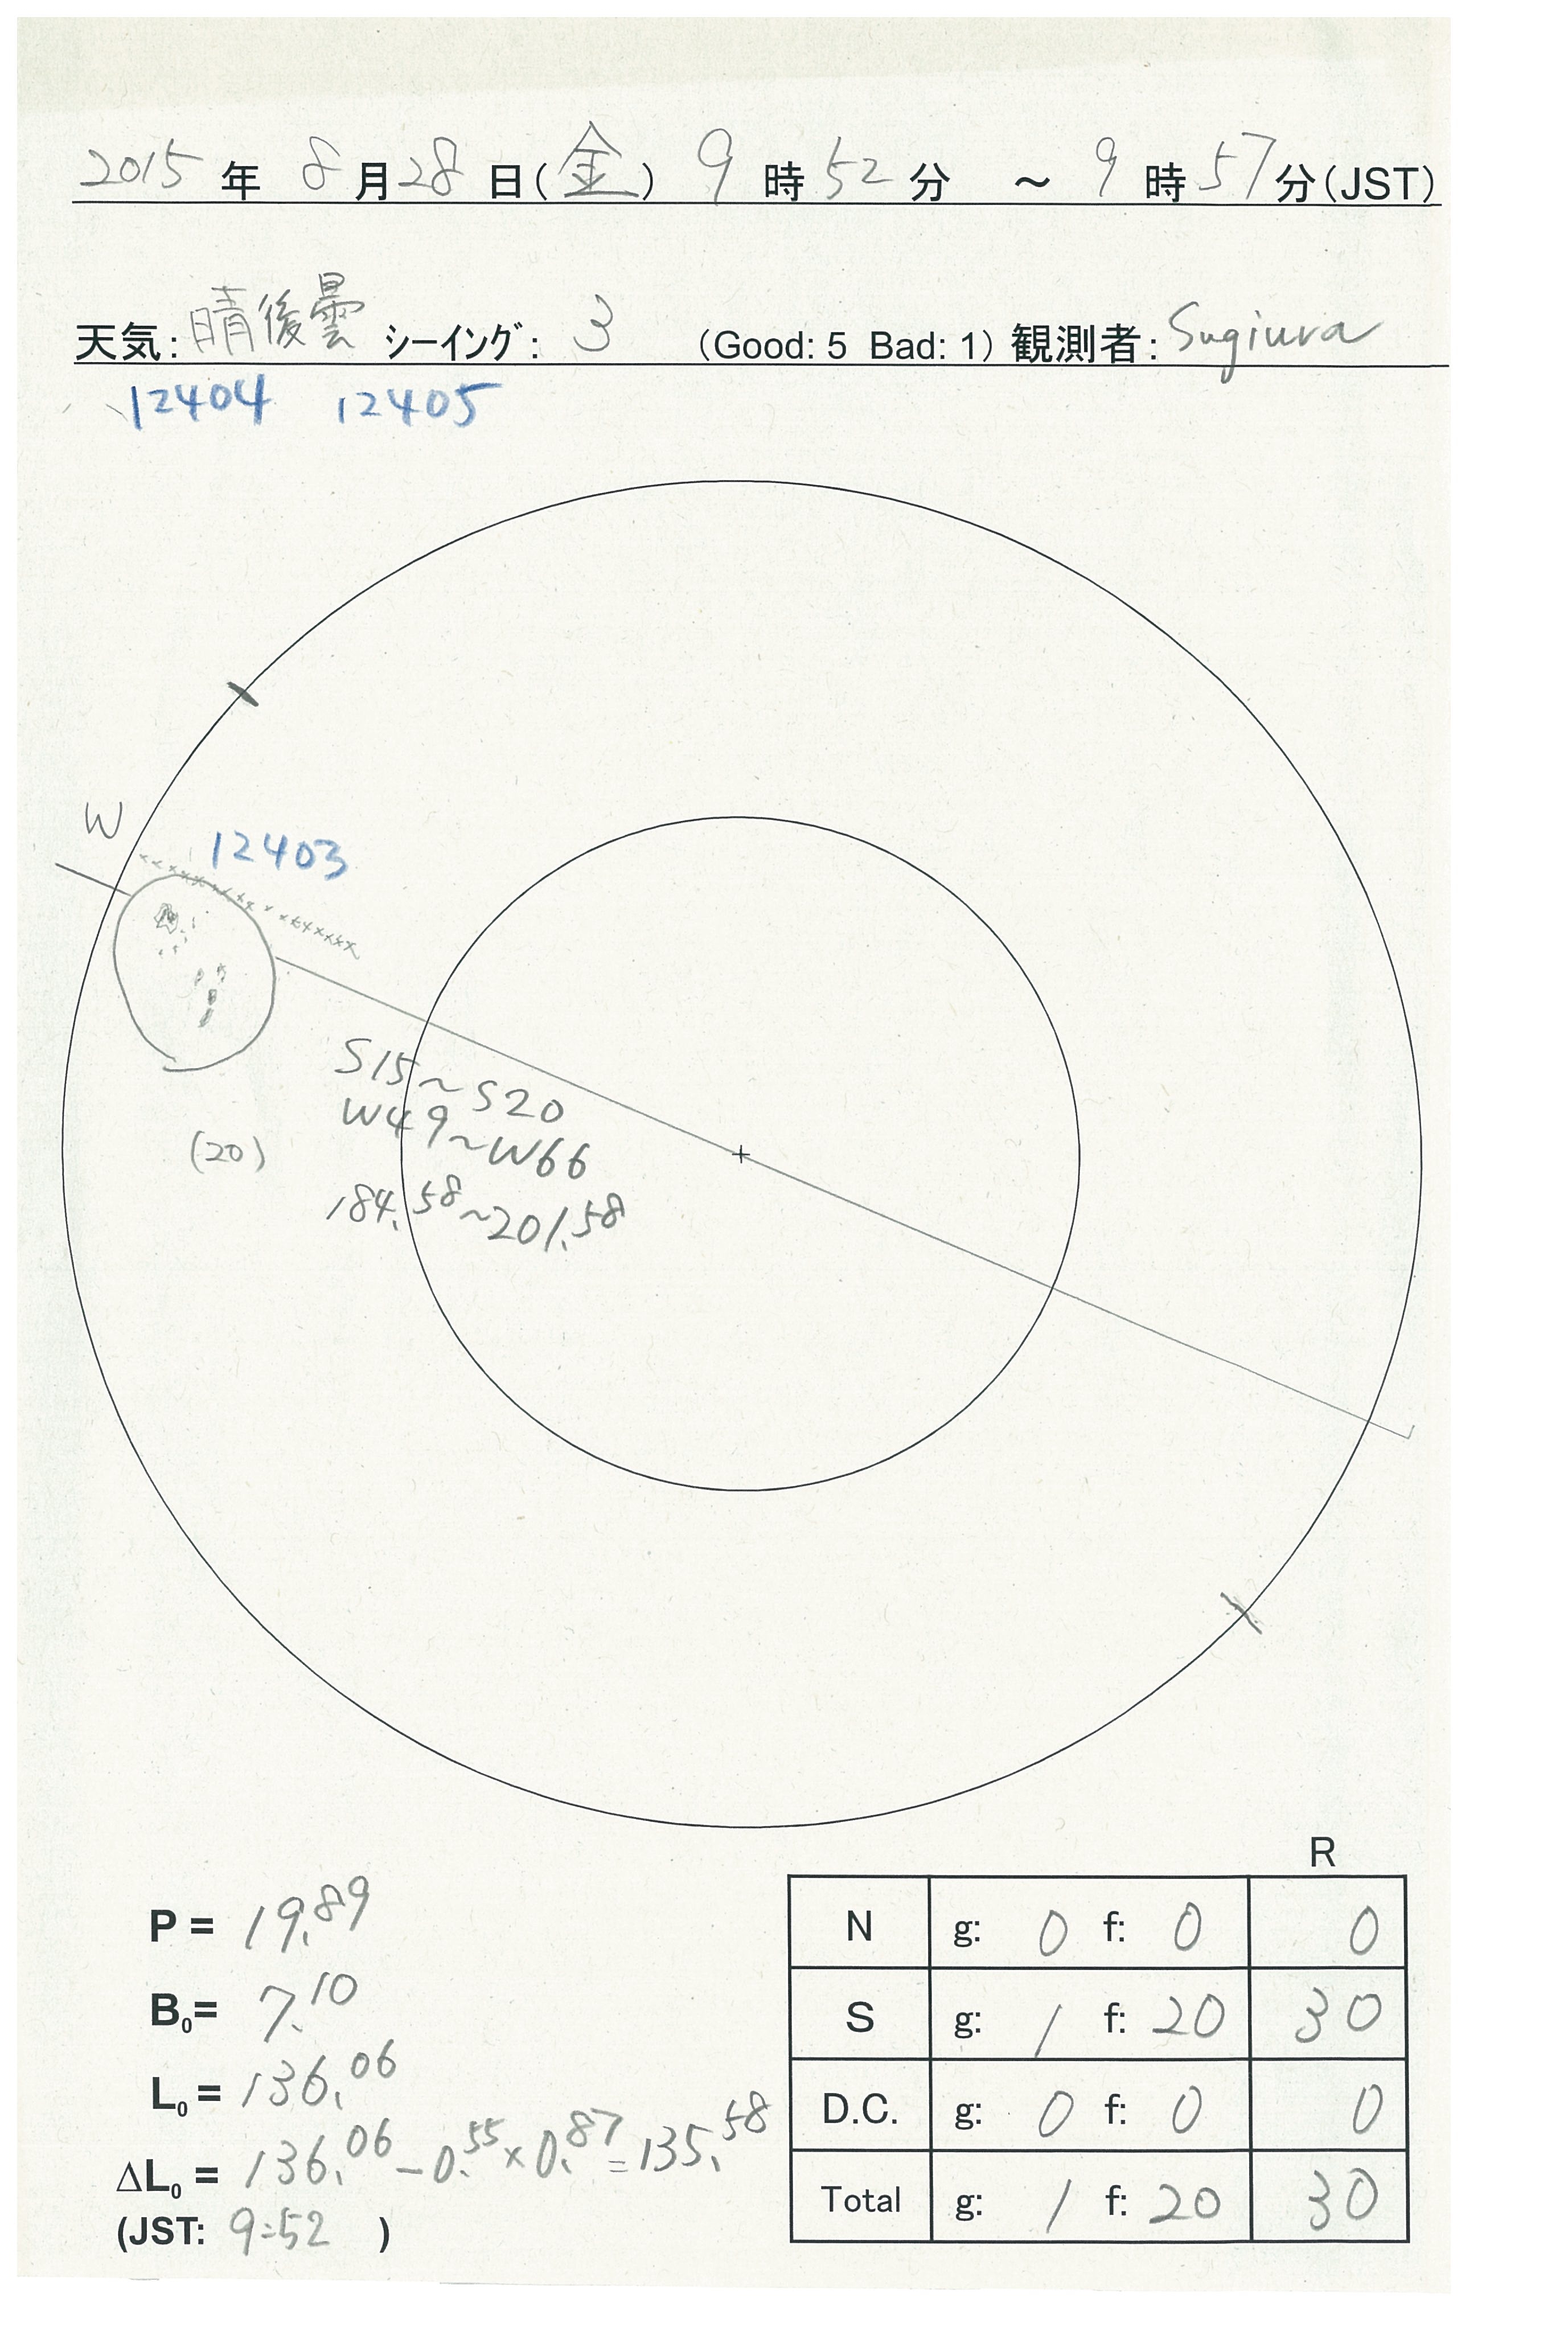 2015年 8月28日(金) 9時52分 ～ 9時57分(JST)
天気: 晴後曇 ｼｰｲﾝｸﾞ: 3 (Good: 5 Bad: 1) 観測者: Sugiura
12404 12405
W
12403
S15～S20
W49～W66
(20)
184.58～201.58
R
P = 19.89
N g: 0 f: 0 0
B0= 7.10
S g: 1 f: 20 30
L0 = 136.06
D.C. g: 0 f: 0 0
ΔL0 = 136.06-0.55×0.87=135.58
Total g: 1 f: 20 30
(JST: 9:52 )